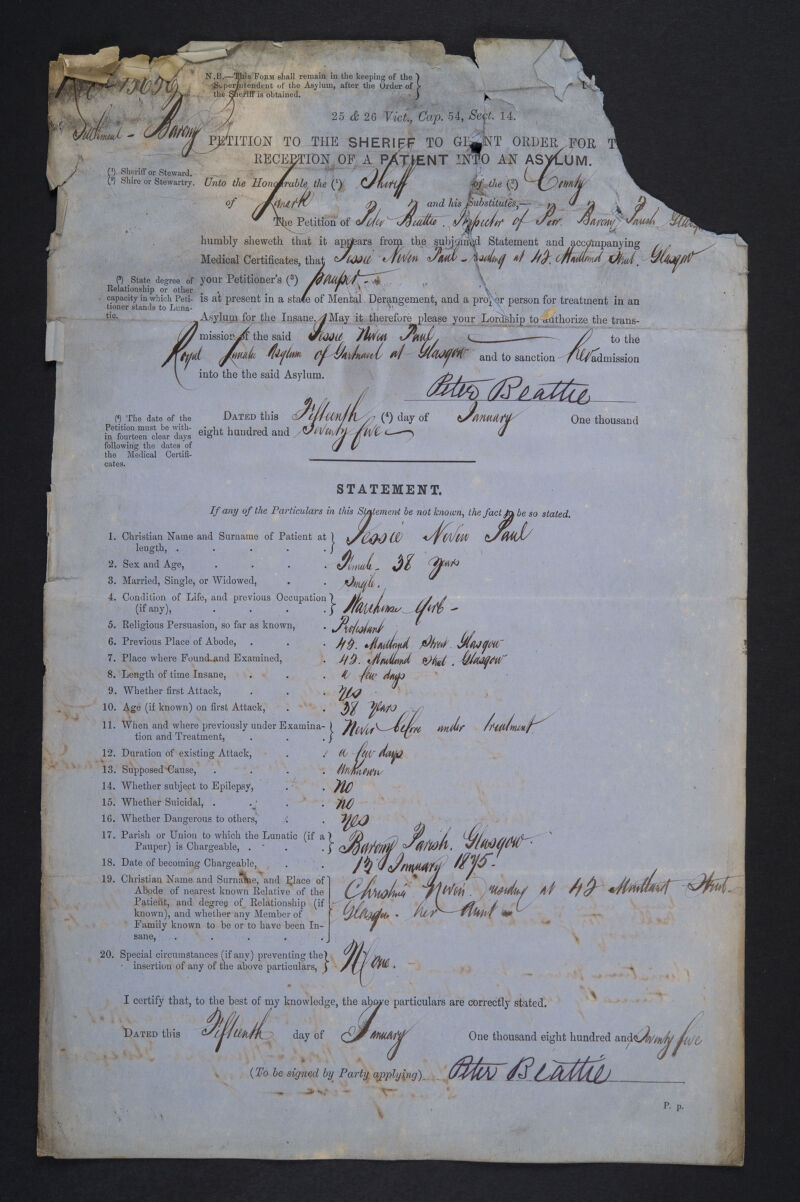 N.B.—This Form shall remain in the keeping of the
Superintendent of the Asylum, after the Order of
the Sheriff is obtained.
25 & 26 Vict., Cap. 54, Sect. 14.
Barony
PETITION TO THE SHERIFF TO GRANT ORDER FOR T
RECEPTION OF A PATIENT INTO AN ASYLUM.
(¹) Sheriff or Steward.
(²) Shire or Stewartry.
Unto the Honourable, the (¹) Sheriff of the (²) County
of Lanark and his Substitutes,—
The Petition of Peter Beattie. Inspector of Poor. Barony Parish
humbly sheweth that it appears from the subjoined Statement and accompanying
Medical Certificates, that Jessie Niven Paul - residing at 42. Maitland Street. Glasgow
(³) State degree of
Relationship or other
capacity in which Peti-
tioner stands to Luna-
tic.
your Petitioner's (³) pauper -
is at present in a state of Mental Derangement, and a proper person for treatment in an
Asylum for the Insane. May it therefore please your Lordship to authorize the trans-
mission of the said Jessie Niven Paul to the
Royal Lunatic Asylum of Gartnavel at Glasgow and to sanction her admission
into the the said Asylum.
Peter Beattie
(⁴) The date of the
Petition must be with-
in fourteen clear days
following the dates of
the Medical Certifi-
cates.
Dated this Fifteenth (⁴) day of January One thousand
eight hundred and Seventy five
STATEMENT.
If any of the Particulars in this Statement be not known, the fact to be so stated.
1. Christian Name and Surname of Patient at length, . Jessie Niven Paul
2. Sex and Age, Female - 38 years
3. Married, Single, or Widowed, Single.
4. Condition of Life, and previous Occupation (if any), Warehouse Girl -
5. Religious Persuasion, so far as known, Protestant
6. Previous Place of Abode, 42. Maitland Street Glasgow
7. Place where Found and Examined, 42. Maitland Street. Glasgow
8. Length of time Insane, a few days
9. Whether first Attack, yes
10. Age (if known) on first Attack, 38 years
11. When and where previously under Examina-
tion and Treatment, Never before under treatment
12. Duration of existing Attack, a few days
13. Supposed Cause, Unknown
14. Whether subject to Epilepsy, no
15. Whether Suicidal, no
16. Whether Dangerous to others, yes
17. Parish or Union to which the Lunatic (if a
Pauper) is Chargeable, Barony Parish. Glasgow.
18. Date of becoming Chargeable, 13 January 1875.
19. Christian Name and Surname, and Place of
Abode of nearest known Relative of the
Patient, and degree of Relationship (if
known), and whether any Member of
Family known to be or to have been In-
sane,
Christina Niven. residing at 42 Maitland Street
Glasgow - her Aunt
20. Special circumstances (if any) preventing the
insertion of any of the above particulars, None.
I certify that, to the best of my knowledge, the above particulars are correctly stated.
Dated this Fifteenth day of January One thousand eight hundred and Seventy five
(To be signed by Party applying) Peter Beattie
P. p.